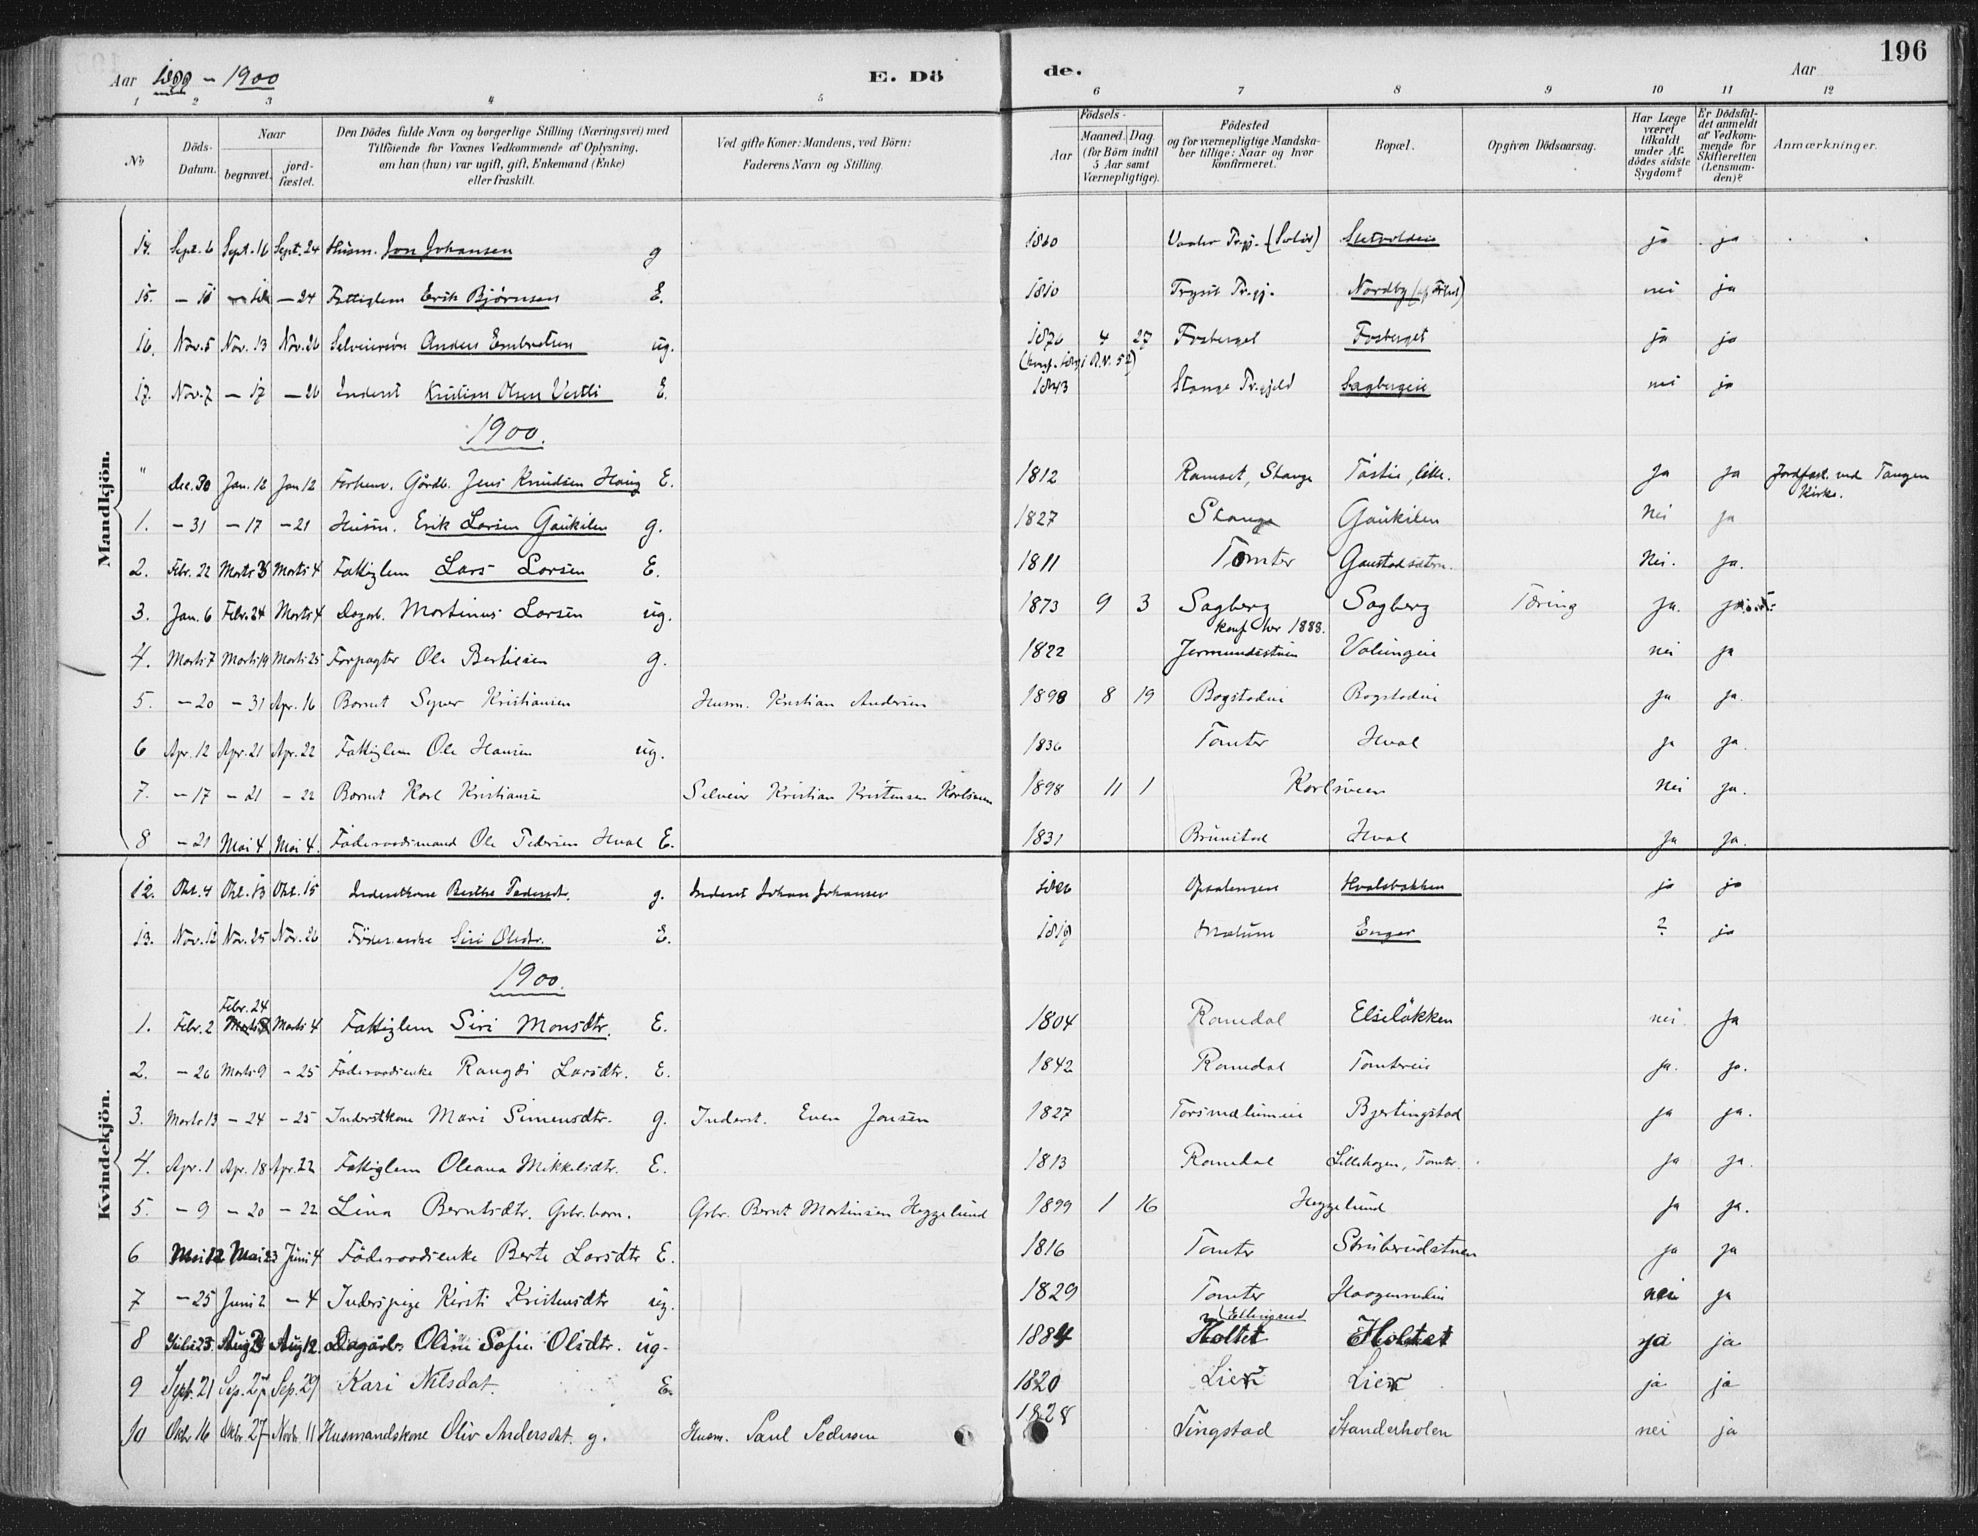 196
Aar 1899 - 1900
E. Dö de.
Aar
1 2 3 4 5 6 7 8 9 10 11 12
No
Döds-Datum.
Naar
begravet.
jordfæstet.
Den Dödes fulde Navn og borgerlige Stilling (Næringsvei) med
Tilföiende for Voxnes Vedkommende af Oplysning,
om han (hun) var ugift, gift, Enkemand (Enke)
eller fraskilt.
Ved gifte Koner: Mandens, ved Börn:
Faderens Navn og Stilling.
Födsels-
Aar Maaned. Dag.
(for Börn indtil
5 Aar samt
Værnepligtige).
Födested
og for værnepligtige Mandskaber tillige: Naar og hvor
konfirmeret.
Bopæl.
Opgiven Dödsaarsag.
Har Læge
været
tilkaldt
under Afdödes sidste
Sygdom?
Er Dödsfaldet anmeldt
af Vedkommende for
Skifteretten
(Lensmanden)?
Anmærkninger.
Mandkjön.
14. Sept. 6 Sept. 16 Sept. 24 Husm. Jon Johansen g 1860 Vaaler Prgj. (Solör) ja ja
15. — — 24 Fattiglem Erik Bjørnsen E. 1810 Trysil Prgj. Nordby nei ja
16. Nov. 5 Nov. 13 Nov. 26 Selveiersøn Anders Embretsen ug. 1876 4 27 Fosberget Fosberget ja ja
17. Nov. 7 — 17 — 26 Inderst Kristian Olsen Vestli E. 1843 Stange Pr.gjeld Sagbergeie nei ja
1900.
" Dec. 30 Jan. 12 Jan 12 Forhenv. Gårdb. Jens Knudsen Haug E. 1812 Ramset, Stange ja ja Jordfæst. ved Tangen
Kirke.
1. — 31 — 17 — 21 Husm. Erik Larsen Gaukilen g. 1827 Stange Gaukilen Nei ja
2. Febr. 22 Marts 3 Marts 4 Fattiglem Lars Larsen E. 1811 Tomter Gaustadsætern. Nei. ja.
3. Jan. 6 Febr. 24 Marts 4 Dagarb. Martinus Larsen ug. 1873 9 3 Sagberg Sagberg Tæring ja.
konf. her 1888.
4. Marts 7 Marts 19 Marts 25 Forpagter Ole Bertilsen g. 1822 Jermundsstuen Volungeie nei ja
5. — 20 — 31 Apr. 16 Barnet Syver Kristiansen Husm. Kristian Andersen 1898 8 19 Bogstadeie Bogstadeie ja ja.
6 Apr. 12 Apr. 21 Apr. 22 Fattiglem Ole Hansen ug. 1836 Tomter Hval ja ja.
7. — 17 — 21 — 22 Barnet Karl Kristiansen Selveier Kristian Kristensen Karlsveen 1898 11 1 Karlsveen Nei ja.
8 — 21 Mai 4 Mai 4. Föderaadsmand Ole Pedersen Hval E. 1831 Brunstad Hval ja ja.
Kvindekjön.
12. Okt. 4 Okt. 13 Okt. 15 Inderstkone Berthe Pedersdtr. g. Inderst Johan Johansen 1826 Opsalengen Hvalsbakken ja ja
13. Nov. 12 Nov. 25 Nov. 26 Siri Olsdtr. E. 1819 Mælum Enger ? ja
1900.
Febr. 24
1. Febr. 2 Marts 3 Marts 4 Fattiglem Siri Monsdtr. E. 1804 Romedal Elselökken nei. ja
2. — 26 Marts 9 — 25 Föderaadsenke Rangdi Larsdtr. E. 1842 Romedal Tomtereie ja. ja.
3. Marts 13 — 24 — 25 Inderstkone Mari Simensdtr. g. Inderst. Even Jonsen 1827 Torsmælumeie Bjertingstad ja ja.
4. Apr. 1 Apr. 18 Apr. 22 Fattiglem Oleana Mikkelsdtr. E. 1813 Romedal Lillehagen, Tomter. ja ja.
5. — 9 — 20 — 22 Lina Berntsdtr. Grbr. barn. Grbr. Bernt Martinsen Heggelund 1899 1 16 Heggelund ja ja.
6 Mai 12 Mai 23 Juni 4 Föderaadsenke Berte Larsdtr E. 1816 Tomter Struberudstuen ja ja
7 — 25 Juni 2 — 4 Inderspige Kersti Kristensdtr ug. 1829 Tomter Haagenrudeie nei ja
8 Juli 23. Aug 3 Aug 12. Dagarb. Oline Sofie Olsdtr. ug. 1884 Holtet Holtet ja ja
9 Sept. 21 Sep. 27 Sep. 29 Kari Nilsdat. E. 1820 Lier Lier ja ja
10 Okbr 16 Okbr. 27 Novbr. 11 Husmandskone Oliv Andersdat. g. Husm. Paul Pedersen 1828 Tingstad Standerholen nei ja